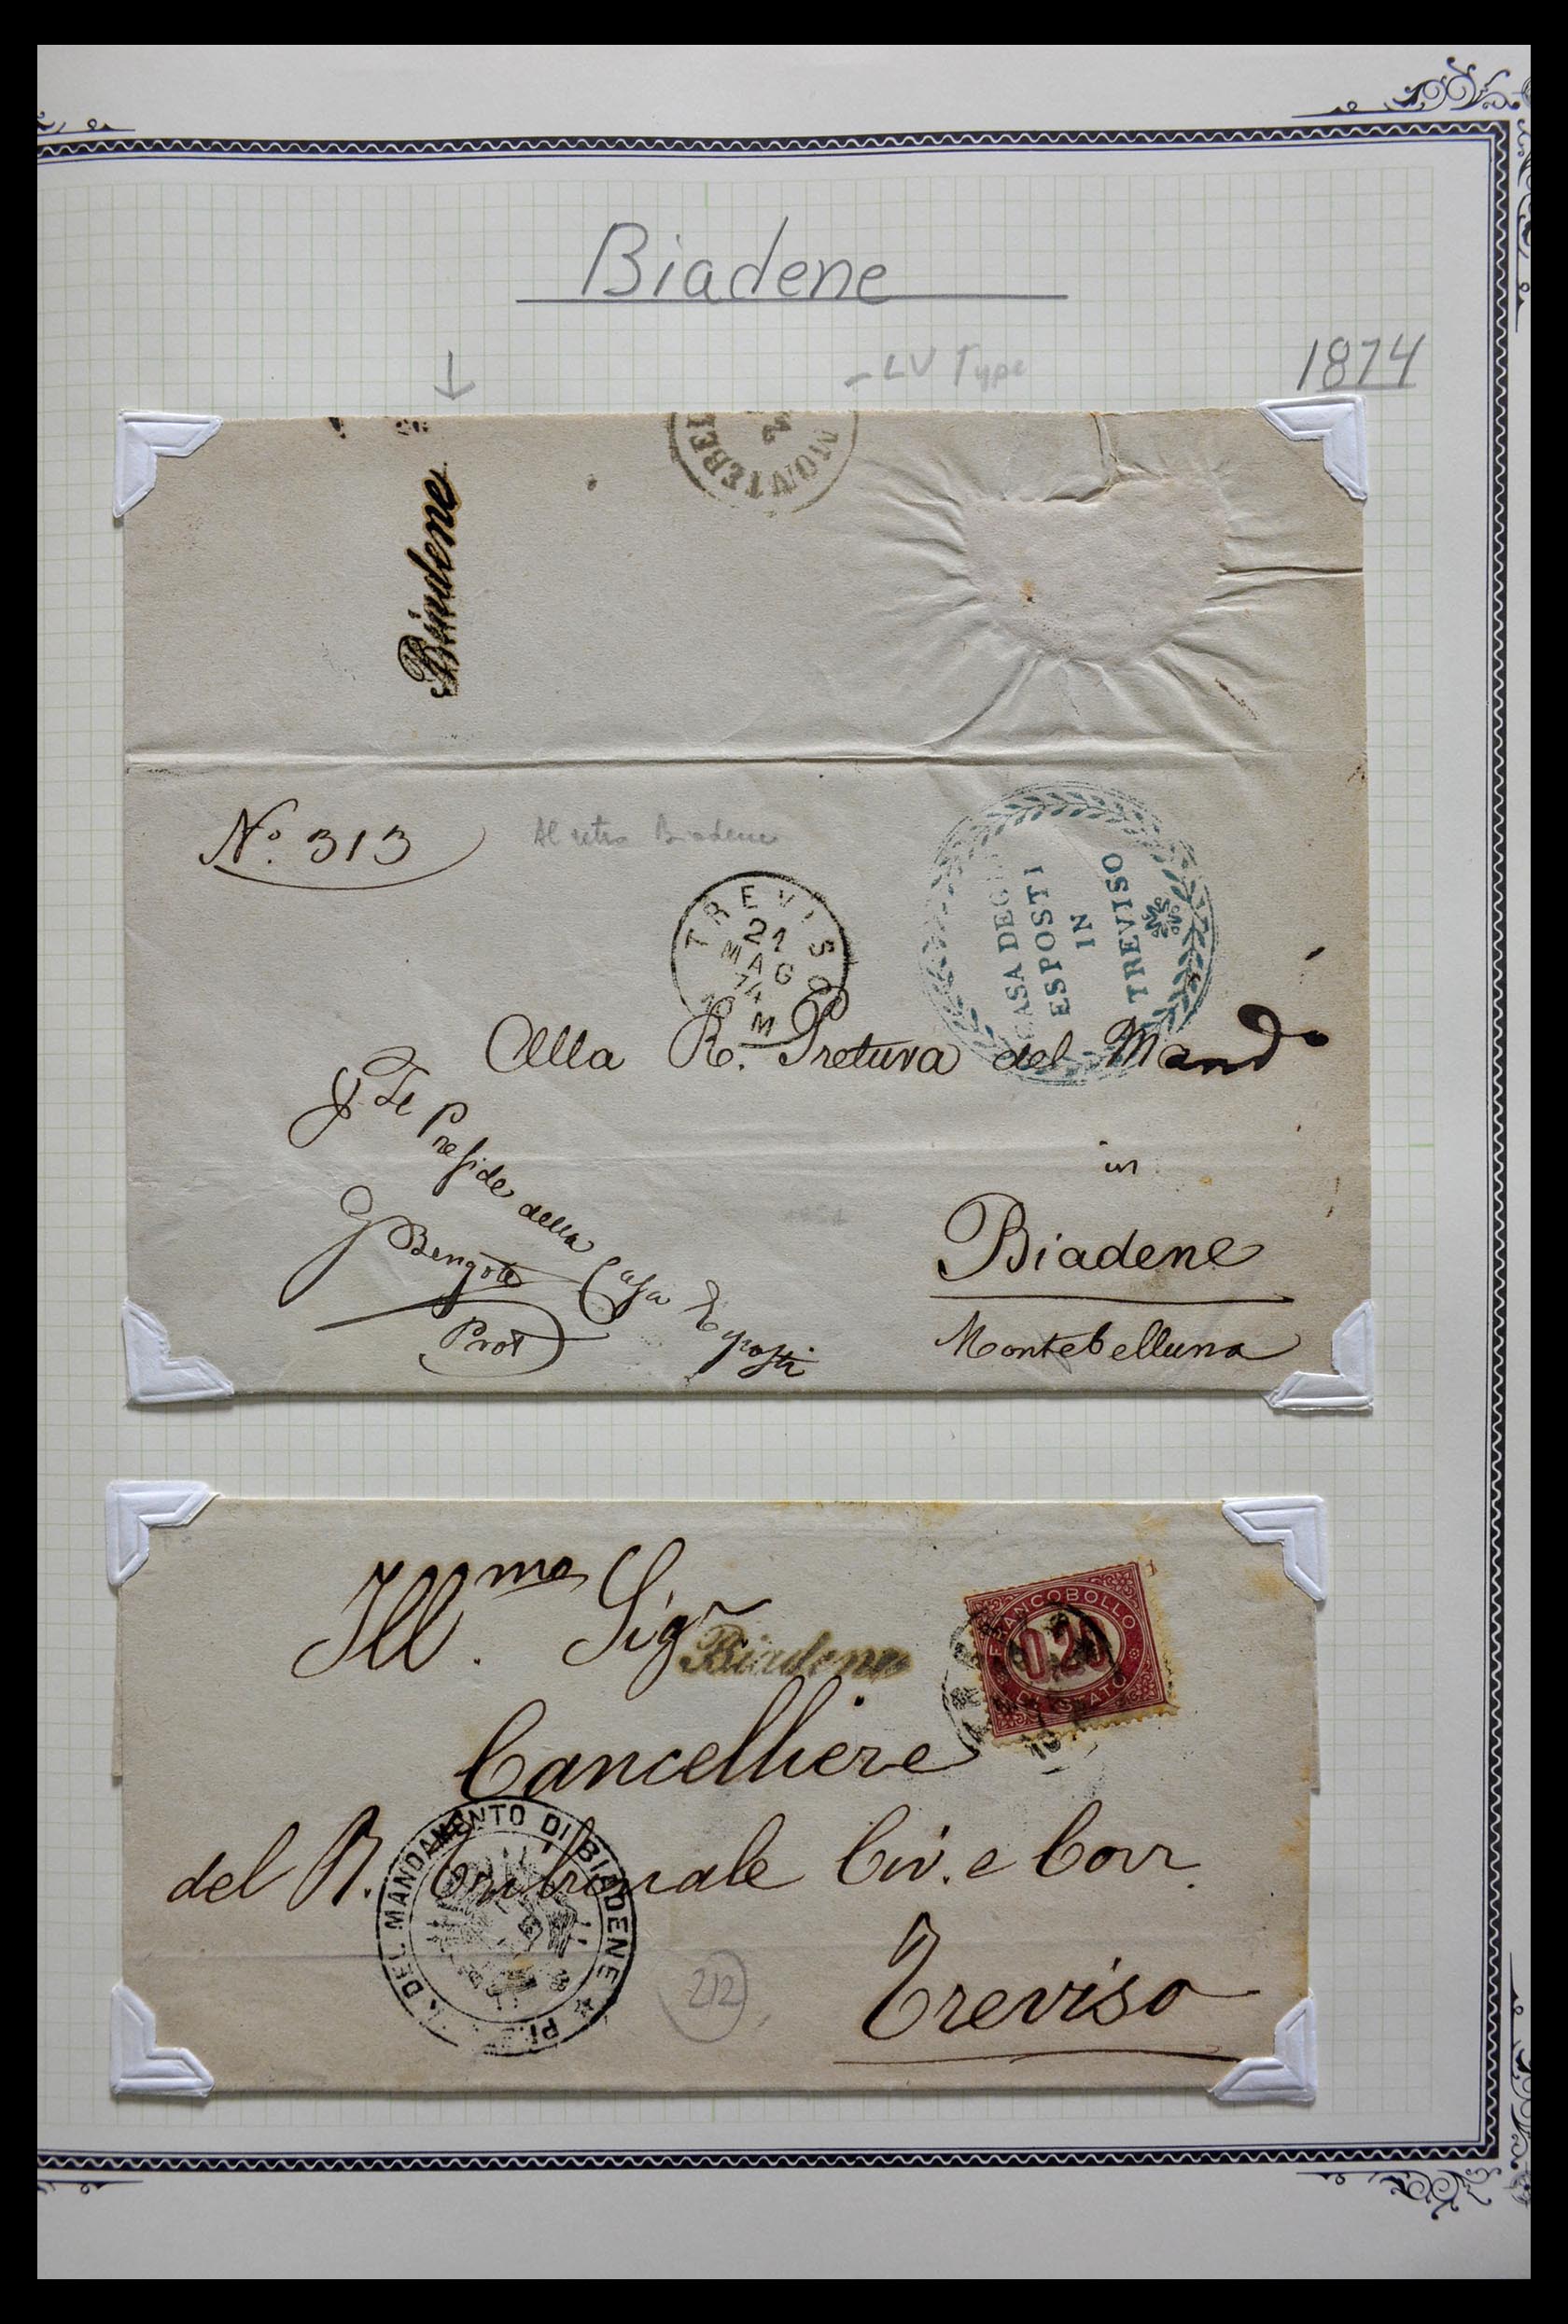 Biadene
LV Type
1874
MONTEBEL
Biadene
Nº. 313
Al retro Biadene
TREVISO
21
MAG
74
10 M
CASA DEGLI
ESPOSTI
IN
TREVISO
Alla R. Pretura del Mando
in
Biadene
Montebelluna
Preside della Casa Esposti
Prot
Illmo. Sigr
Biadene
FRANCOBOLLO
0.20
DI STATO
Cancelliere
del R. Tribunale Civ. e Corr.
DEL MANDAMENTO DI BIADENE
212
Treviso